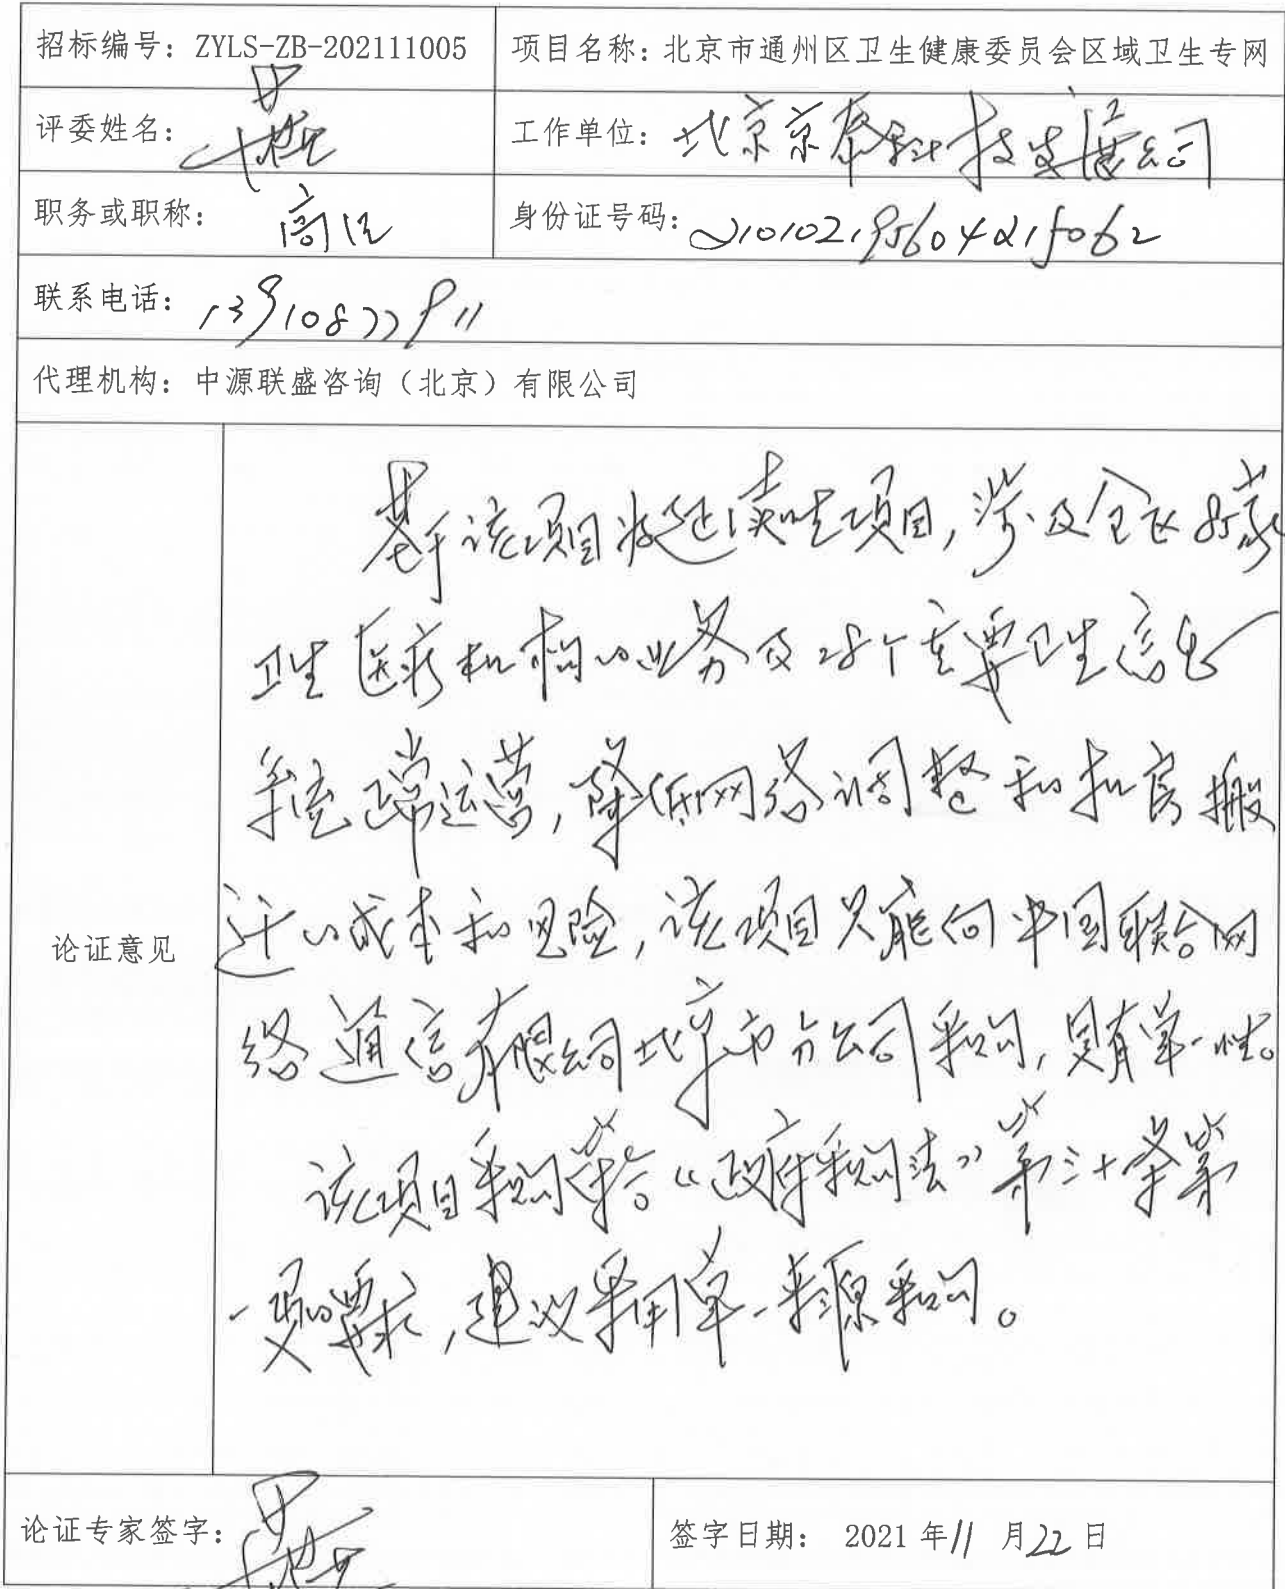 招标编号：ZYLS-ZB-202111005
项目名称：北京市通州区卫生健康委员会区域卫生专网
评委姓名：
工作单位：北京京泰科技发展公司
职务或职称：高工
身份证号码：210102195604215062
联系电话：13910877911
代理机构：中源联盛咨询（北京）有限公司
论证意见
基于该项目为延续性项目，涉及全区85家
卫生医疗机构的业务及28个主要卫生信息
系统正常运营，降低网络调整和机房搬
迁的成本和风险，该项目只能向中国联合网
络通信有限公司北京市分公司采购，具有单一性。
该项目采购符合“《政府采购法》”第三十一条第
一项的要求，建议采用单一来源采购。
论证专家签字：
签字日期： 2021年11月22日